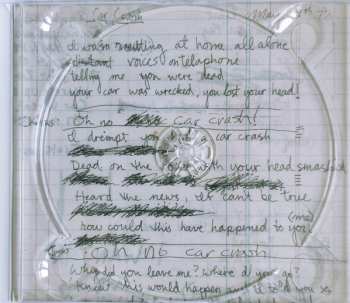 Car Crash
I was sitting at home all alone
distant voices on telephone
telling me you were dead
your car was wrecked, you lost your head!
Chorus: Oh no car crash!
I dreampt you car crash
Dead on the road with your head smashed
Heard the news, it cant be true
(me)
how could this have happened to you
: Oh no car crash
Why did you leave me? Where d you go?
I knew this would happen and I told you so